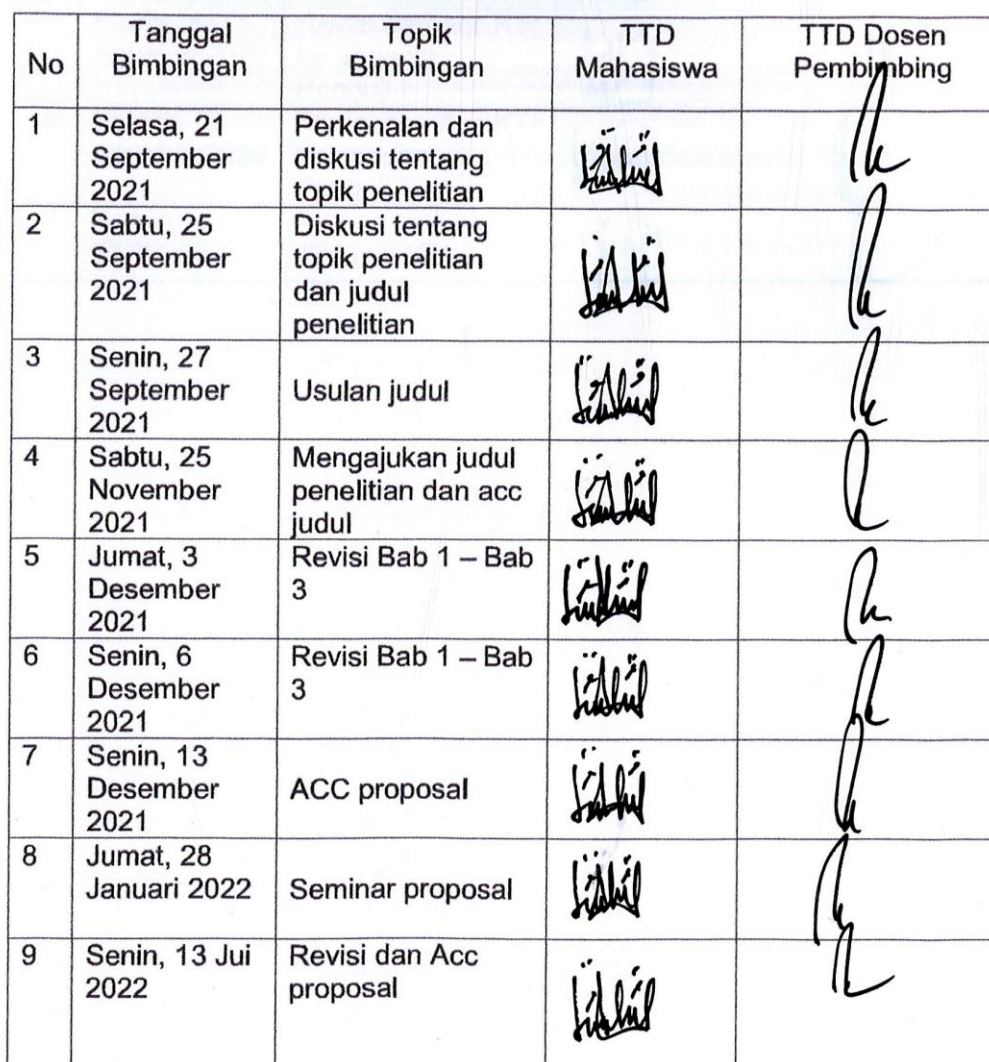 No
Tanggal
Bimbingan
Topik
Bimbingan
TTD
Mahasiswa
TTD Dosen
Pembimbing
1
Selasa, 21
September
2021
Perkenalan dan
diskusi tentang
topik penelitian
2
Sabtu, 25
September
2021
Diskusi tentang
topik penelitian
dan judul
penelitian
3
Senin, 27
September
2021
Usulan judul
4
Sabtu, 25
November
2021
Mengajukan judul
penelitian dan acc
judul
5
Jumat, 3
Desember
2021
Revisi Bab 1 – Bab
3
6
Senin, 6
Desember
2021
Revisi Bab 1 – Bab
3
7
Senin, 13
Desember
2021
ACC proposal
8
Jumat, 28
Januari 2022
Seminar proposal
9
Senin, 13 Jui
2022
Revisi dan Acc
proposal